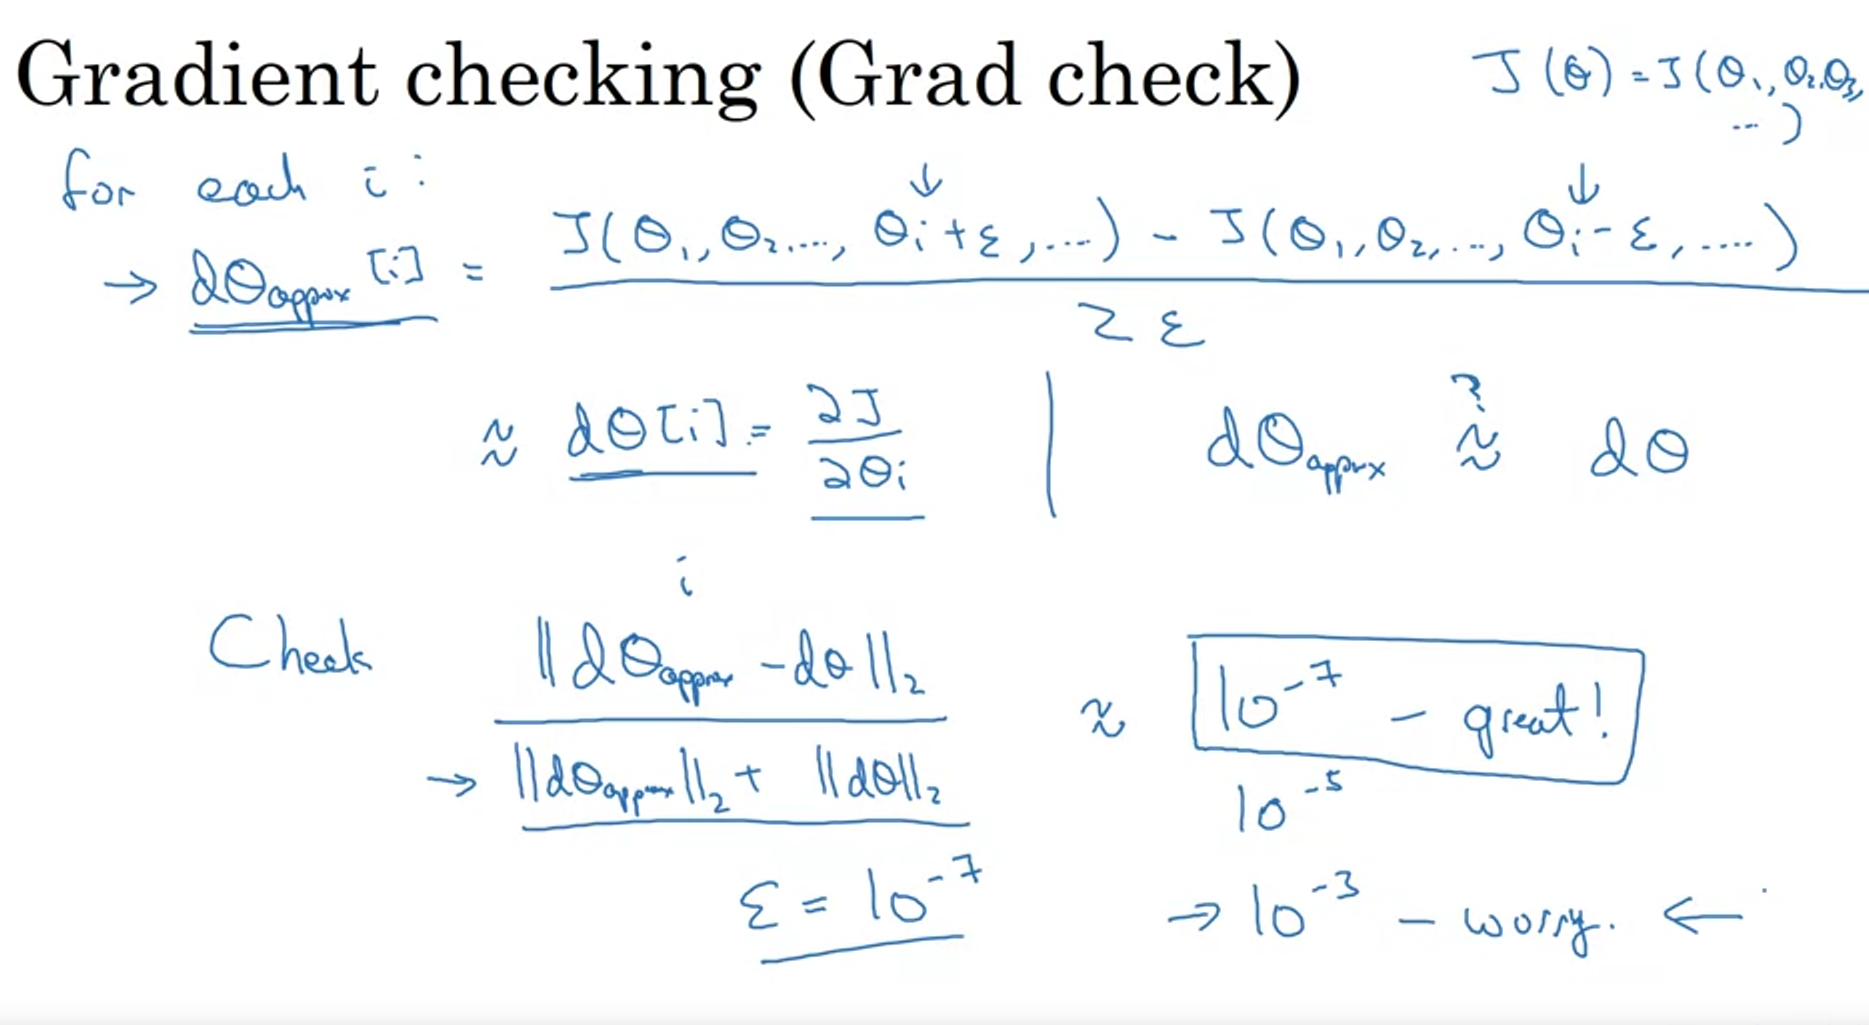 Gradient checking (Grad check)
J(θ) = J(θ₁, θ₂, θ₃, ...)
for each i:
→ dθapprox[i] = J(θ₁, θ₂, ..., θᵢ+ε, ...) - J(θ₁, θ₂, ..., θᵢ-ε, ...) / 2ε
≈ dθ[i] = ∂J/∂θᵢ | dθapprox ≈? dθ
i
Check ||dθapprox - dθ||₂ / ||dθapprox||₂ + ||dθ||₂ ≈ 10⁻⁷ - great!
10⁻⁵
ε = 10⁻⁷ → 10⁻³ - worry. ←